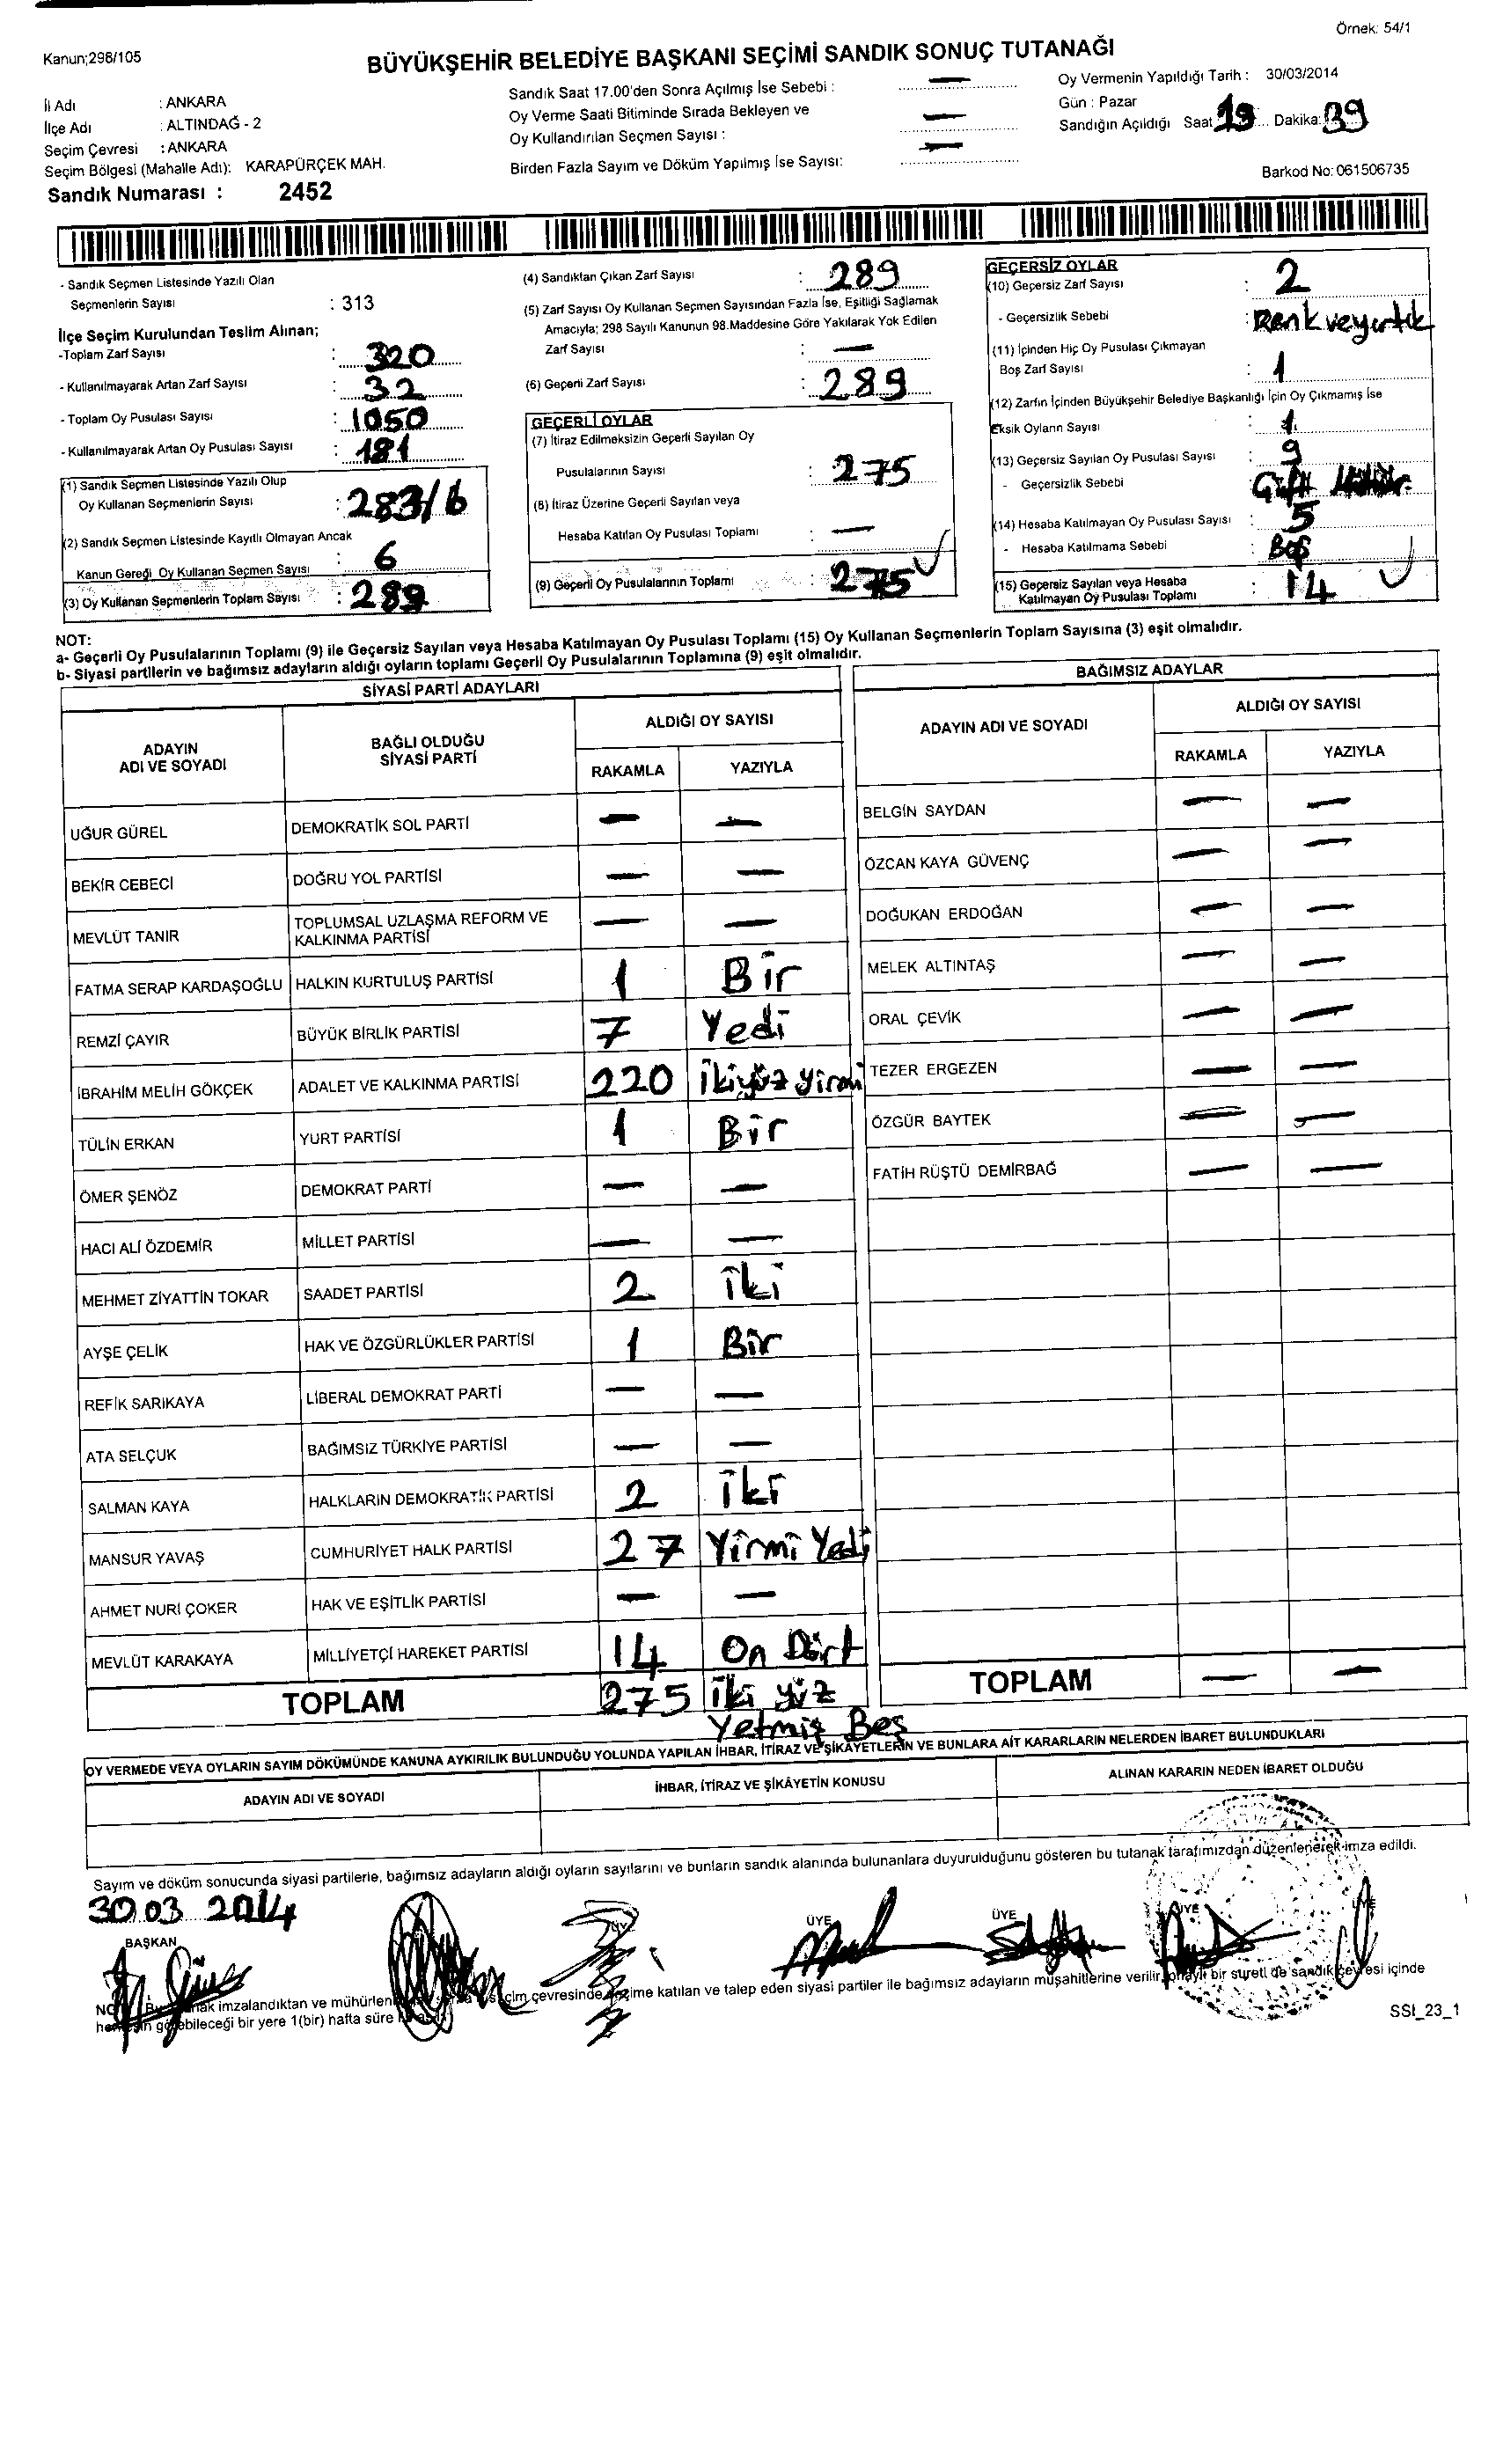 Örnek: 54/1
Kanun;298/105
BÜYÜKŞEHİR BELEDİYE BAŞKANI SEÇİMİ SANDIK SONUÇ TUTANAĞI
İl Adı : ANKARA
İlçe Adı : ALTINDAĞ - 2
Seçim Çevresi : ANKARA
Seçim Bölgesi (Mahalle Adı): KARAPÜRÇEK MAH.
Sandık Numarası : 2452
Sandık Saat 17.00'den Sonra Açılmış İse Sebebi : —
Oy Verme Saati Bitiminde Sırada Bekleyen ve
Oy Kullandırılan Seçmen Sayısı : —
Birden Fazla Sayım ve Döküm Yapılmış İse Sayısı: —
Oy Vermenin Yapıldığı Tarih : 30/03/2014
Gün : Pazar
Sandığın Açıldığı Saat 19 Dakika: 39
Barkod No: 061506735
- Sandık Seçmen Listesinde Yazılı Olan
Seçmenlerin Sayısı : 313
İlçe Seçim Kurulundan Teslim Alınan;
-Toplam Zarf Sayısı : 320
- Kullanılmayarak Artan Zarf Sayısı : 32
- Toplam Oy Pusulası Sayısı : 1050
- Kullanılmayarak Artan Oy Pusulası Sayısı : 181
(1) Sandık Seçmen Listesinde Yazılı Olup
Oy Kullanan Seçmenlerin Sayısı : 283/6
(2) Sandık Seçmen Listesinde Kayıtlı Olmayan Ancak
Kanun Gereği Oy Kullanan Seçmen Sayısı : 6
(3) Oy Kullanan Seçmenlerin Toplam Sayısı : 289
(4) Sandıktan Çıkan Zarf Sayısı : 289
(5) Zarf Sayısı Oy Kullanan Seçmen Sayısından Fazla İse, Eşitliği Sağlamak
Amacıyla; 298 Sayılı Kanunun 98.Maddesine Göre Yakılarak Yok Edilen
Zarf Sayısı : —
(6) Geçerli Zarf Sayısı : 289
GEÇERLİ OYLAR
(7) İtiraz Edilmeksizin Geçerli Sayılan Oy
Pusulalarının Sayısı : 275
(8) İtiraz Üzerine Geçerli Sayılan veya
Hesaba Katılan Oy Pusulası Toplamı : —
(9) Geçerli Oy Pusulalarının Toplamı : 275
GEÇERSİZ OYLAR
(10) Geçersiz Zarf Sayısı : 2
- Geçersizlik Sebebi : Renk ve yırtık
(11) İçinden Hiç Oy Pusulası Çıkmayan
Boş Zarf Sayısı : 1
(12) Zarfın İçinden Büyükşehir Belediye Başkanlığı İçin Oy Çıkmamış İse
Eksik Oyların Sayısı : 1
(13) Geçersiz Sayılan Oy Pusulası Sayısı : 9
- Geçersizlik Sebebi : Çift
(14) Hesaba Katılmayan Oy Pusulası Sayısı : 5
- Hesaba Katılmama Sebebi : Boş
(15) Geçersiz Sayılan veya Hesaba
Katılmayan Oy Pusulası Toplamı : 14
NOT:
a- Geçerli Oy Pusulalarının Toplamı (9) ile Geçersiz Sayılan veya Hesaba Katılmayan Oy Pusulası Toplamı (15) Oy Kullanan Seçmenlerin Toplam Sayısına (3) eşit olmalıdır.
b- Siyasi partilerin ve bağımsız adayların aldığı oyların toplamı Geçerli Oy Pusulalarının Toplamına (9) eşit olmalıdır.
SİYASİ PARTİ ADAYLARI
ADAYIN ADI VE SOYADI BAĞLI OLDUĞU SİYASİ PARTİ ALDIĞI OY SAYISI
RAKAMLA YAZIYLA
UĞUR GÜREL DEMOKRATİK SOL PARTİ — —
BEKİR CEBECİ DOĞRU YOL PARTİSİ — —
MEVLÜT TANIR TOPLUMSAL UZLAŞMA REFORM VE KALKINMA PARTİSİ — —
FATMA SERAP KARDAŞOĞLU HALKIN KURTULUŞ PARTİSİ 1 Bir
REMZİ ÇAYIR BÜYÜK BİRLİK PARTİSİ 7 Yedi
İBRAHİM MELİH GÖKÇEK ADALET VE KALKINMA PARTİSİ 220 İkiyüz yirmi
TÜLİN ERKAN YURT PARTİSİ 1 Bir
ÖMER ŞENÖZ DEMOKRAT PARTİ — —
HACI ALİ ÖZDEMİR MİLLET PARTİSİ — —
MEHMET ZİYATTİN TOKAR SAADET PARTİSİ 2 iki
AYŞE ÇELİK HAK VE ÖZGÜRLÜKLER PARTİSİ 1 Bir
REFİK SARIKAYA LİBERAL DEMOKRAT PARTİ — —
ATA SELÇUK BAĞIMSIZ TÜRKİYE PARTİSİ — —
SALMAN KAYA HALKLARIN DEMOKRATİK PARTİSİ 2 iki
MANSUR YAVAŞ CUMHURİYET HALK PARTİSİ 27 Yirmi Yedi
AHMET NURİ ÇOKER HAK VE EŞİTLİK PARTİSİ — —
MEVLÜT KARAKAYA MİLLİYETÇİ HAREKET PARTİSİ 14 On Dört
TOPLAM 275 iki yüz
Yetmiş Beş
BAĞIMSIZ ADAYLAR
ADAYIN ADI VE SOYADI ALDIĞI OY SAYISI
RAKAMLA YAZIYLA
BELGİN SAYDAN — —
ÖZCAN KAYA GÜVENÇ — —
DOĞUKAN ERDOĞAN — —
MELEK ALTINTAŞ — —
ORAL ÇEVİK — —
TEZER ERGEZEN — —
ÖZGÜR BAYTEK — —
FATİH RÜŞTÜ DEMİRBAĞ — —
TOPLAM — —
OY VERMEDE VEYA OYLARIN SAYIM DÖKÜMÜNDE KANUNA AYKIRILIK BULUNDUĞU YOLUNDA YAPILAN İHBAR, İTİRAZ VE ŞİKAYETLERİN VE BUNLARA AİT KARARLARIN NELERDEN İBARET BULUNDUKLARI
ADAYIN ADI VE SOYADI İHBAR, İTİRAZ VE ŞİKÂYETİN KONUSU ALINAN KARARIN NEDEN İBARET OLDUĞU
Sayım ve döküm sonucunda siyasi partilerle, bağımsız adayların aldığı oyların sayılarını ve bunların sandık alanında bulunanlara duyurulduğunu gösteren bu tutanak tarafımızdan düzenlenerek imza edildi.
30.03 2014
BAŞKAN ÜYE ÜYE ÜYE ÜYE
imzalandıktan ve çevresinde katılan ve talep eden siyasi partiler ile bağımsız adayların müşahitlerine verilir, onaylı bir sureti de sandık çevresi içinde
herkesin görebileceği bir yere 1(bir) hafta süre
SSI_23_1